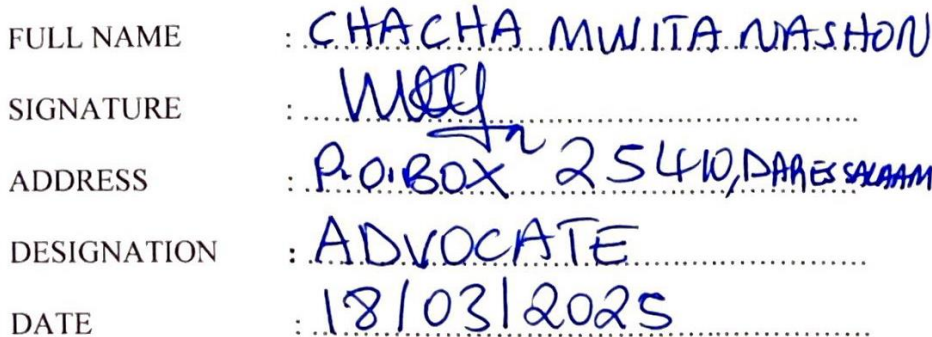 FULL NAME : CHACHA MWITA NASHON
SIGNATURE :
ADDRESS : P.O.BOX 25410, DARESSALAAM
DESIGNATION : ADVOCATE
DATE : 18/03/2025